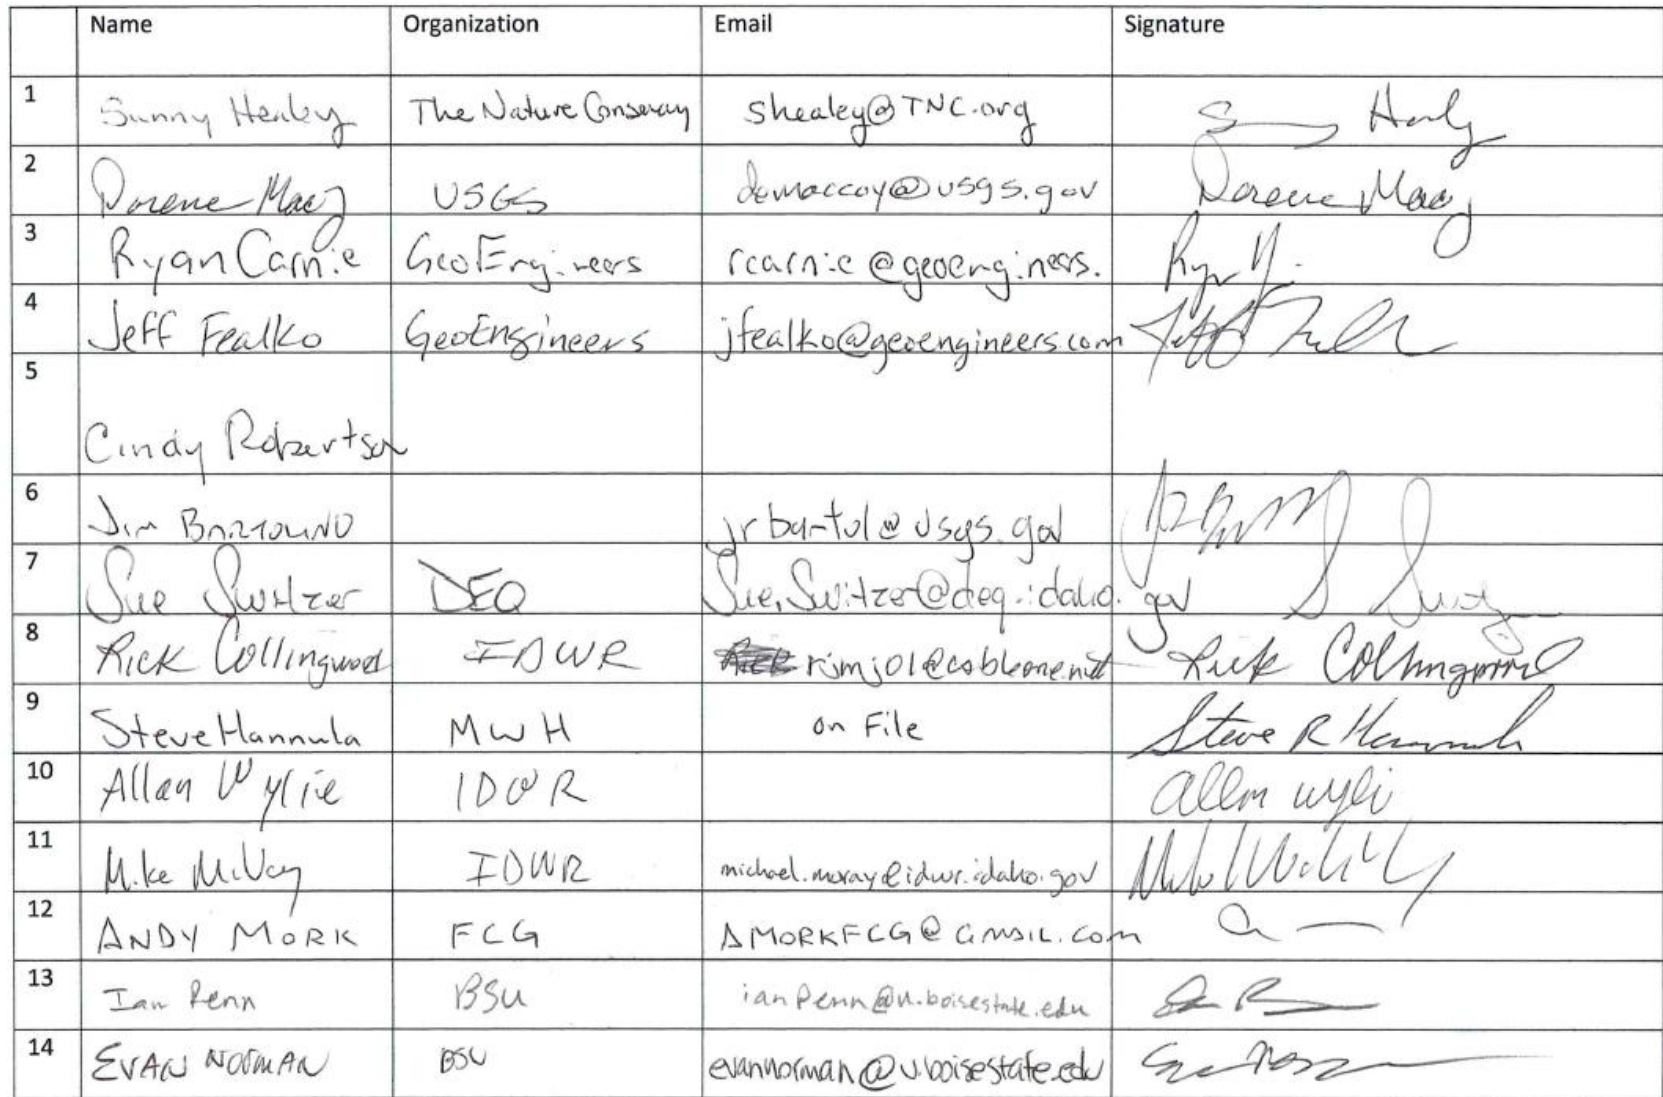 Name Organization Email Signature
1 Sunny Healey The Nature Conservancy shealey@TNC.org S Healy
2 Dorene USGS demaccoy@usgs.gov Dorene
3 Ryan Carnie GeoEngineers rcarnie@geoengineers. Ryan
4 Jeff Fealko GeoEngineers jfealko@geoengineers.com Jeff
5
Cindy Robertson
6 Jim Bartolino jrbartol@usgs.gov
7 Sue Switzer DEQ Sue.Switzer@deq.idaho.gov S
8 Rick Collingwood IDWR rjmjol@cableone.net Rick Collingwood
9 Steve Hannula MWH on File Steve R Hannula
10 Allan Wylie IDWR allan wylie
11 Mike McVay IDWR michael.mcvay@idwr.idaho.gov
12 ANDY MORK FCG AMORKFCG@GMAIL.com
13 Ian Penn BSU ianpenn@u.boisestate.edu
14 EVAN NORMAN BSU evannorman@u.boisestate.edu